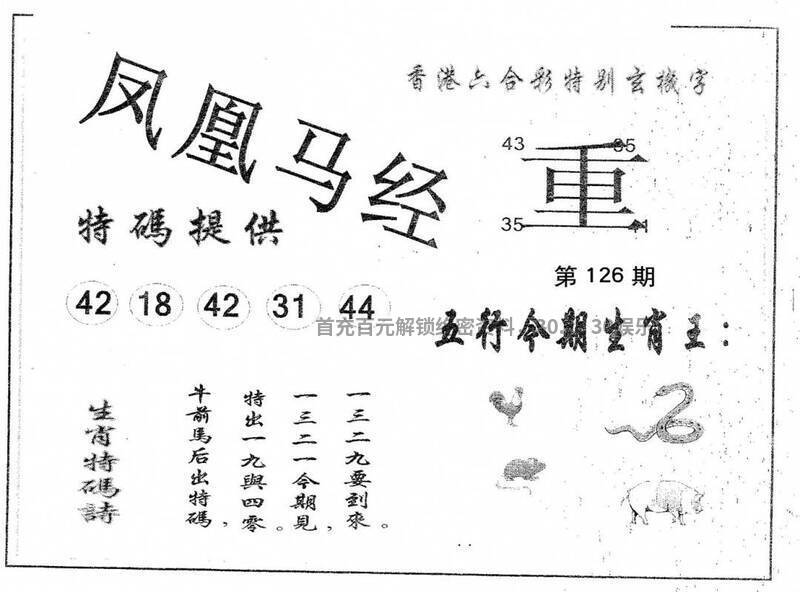 香港六合彩特别玄機字
凤凰马经
43
35
重
35
特碼提供
第126期
42 18 42 31 44
五行今期生肖王：
生肖特碼詩
一三二九要到來。
一三二一今期見，
特出一九與四零。
牛前馬后出特碼，